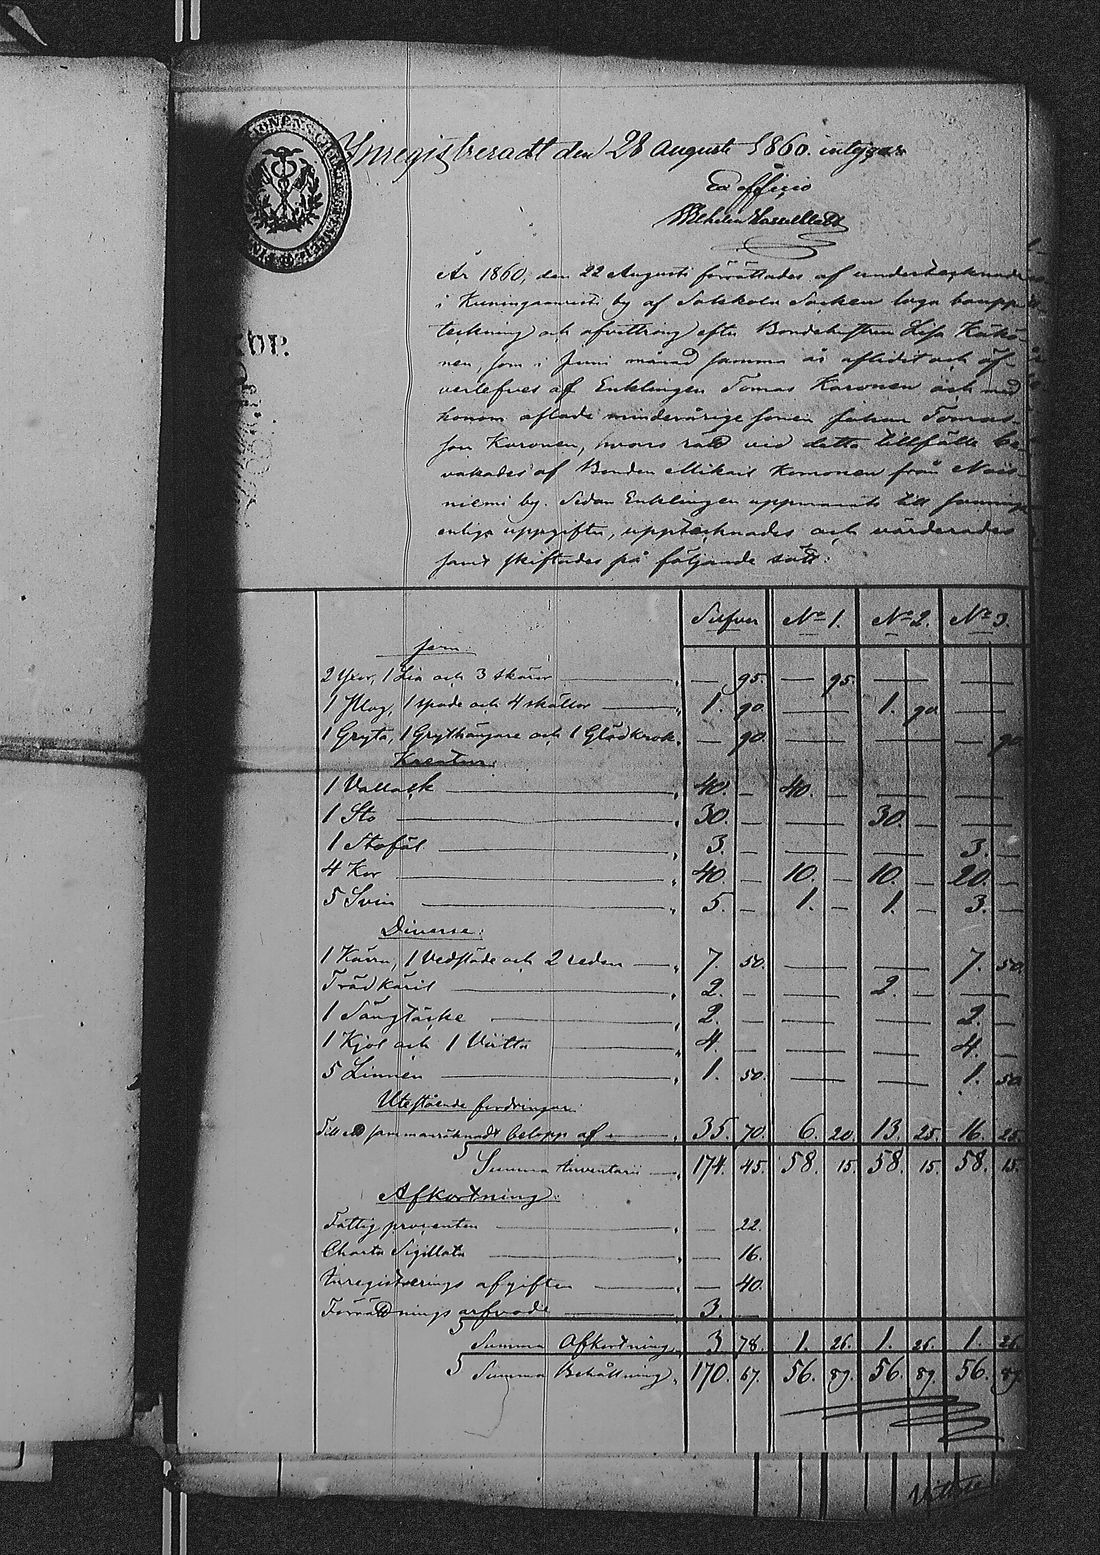 Inregistreradt den 28 Augusti 1860. intygar
Ex officio
År 1860, den 22 Augusti förrättades af undertecknade
i Kuningaanristi by af Sakkola Socken laga bouppteckning och afvittring efter Bondehustrun Lisa
nen som i Juni månad samma år aflidit och öf-
verlefves af Enklingen Tomas Karonen och med
honom aflade minderårige sonen Johan Tomas-
son Karonen, hvars rätt vid detta tillfälle be-
vakades af Bonden Mikael Komonen från Nois-
niemi by. Sedan Enklingen uppmanats till sannings-
enliga uppgifter, upptecknades och värderades
samt skiftades på följande sätt:
Silfver No 1. No 2. No 3.
Jern
2 Yxor, 1 Lia och 3 skäror — 95. — 95.
1 Plog, 1 spade och 4 skällor 1. 90. 1. 90
1 Gryta, 1 Grythängare och 1 Glödkrok — 90. — 90
Kreatur:
1 Vallack 40. — 40. —
1 Sto 30. — 30. —
1 Stoföl 3. — 3. —
4 Kor 40. — 10. — 10. — 20. —
5 Svin 5. — 1. — 1. — 3. —
Diverse:
1 Kärra, 1 Vedsläde och 2 reden 7. 50. 7. 50.
Trädkäril 2. — 2. —
1 Sängtäcke 2. — 2. —
1 Kjol och 1 4. — 4. —
5 Linnen 1. 50. 1. 50
Utestående fordringar
Till ett sammanräknadt belopp af 35. 70. 6. 20. 13. 25. 16. 25.
Summa Inventarii 174. 45. 58. 15. 58. 15. 58. 15.
Afkortning:
Fattigprocenten — 22.
Charta Sigillata — 16.
Inregistrerings afgiften — 40.
Förrättnings arfvode 3. —
Summa Afkortning 3 78. 1. 26. 1. 26. 1. 26.
Summa Behållning 170. 67. 56. 89. 56. 89. 56. 89.